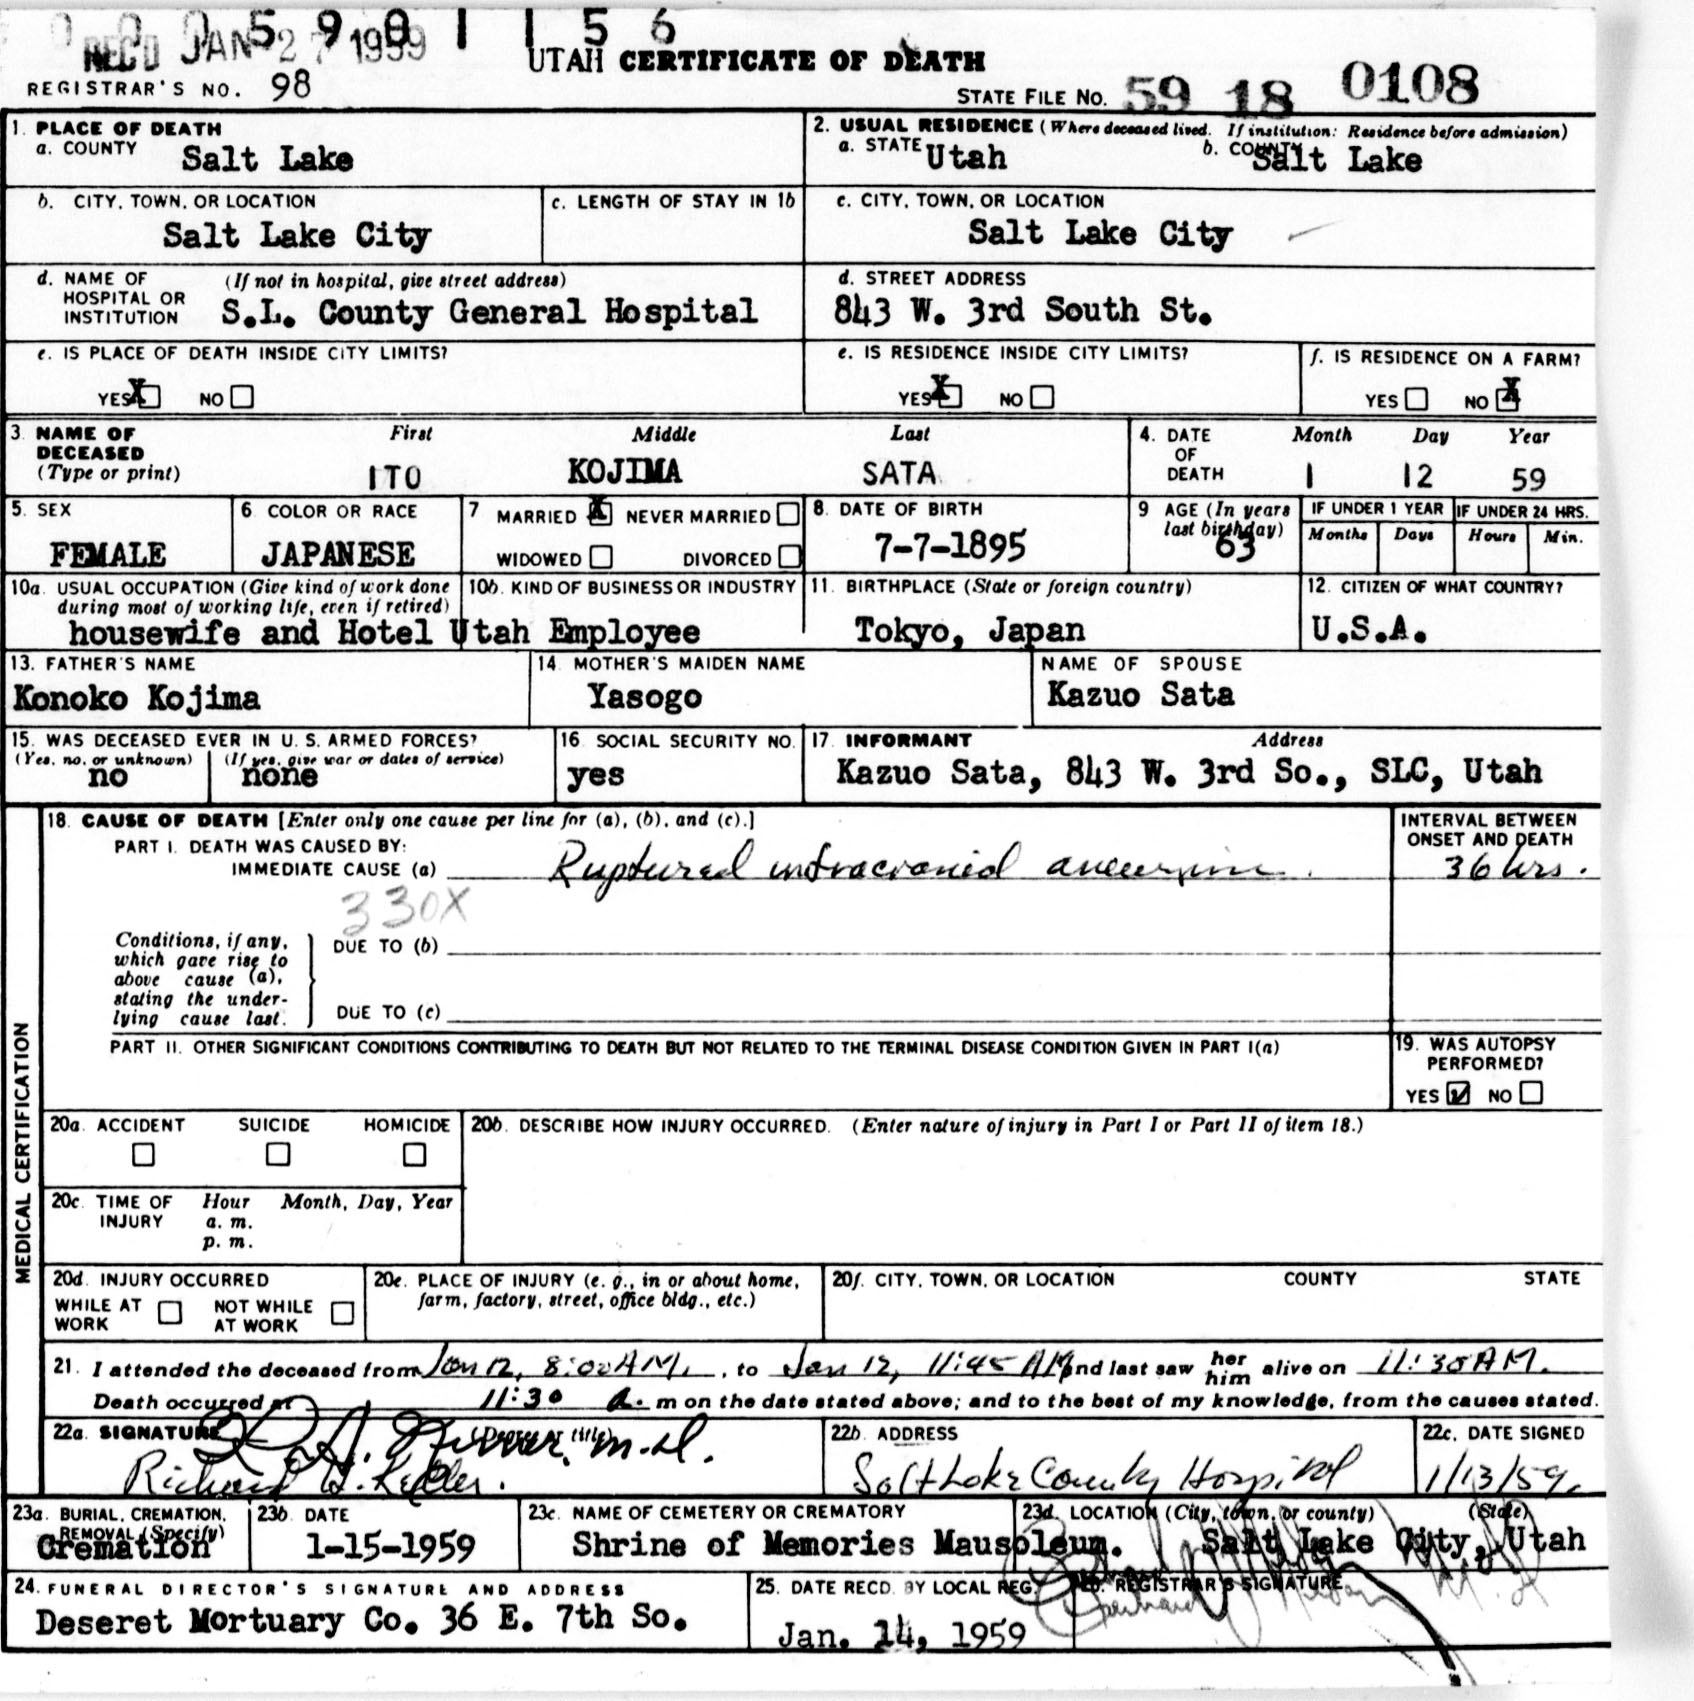 0 0 0 5 9 0 1 1 5 6
REC'D JAN 27 1959
UTAH CERTIFICATE OF DEATH
REGISTRAR'S NO. 98
STATE FILE NO. 59 18 0108
1. PLACE OF DEATH
a. COUNTY Salt Lake
2. USUAL RESIDENCE (Where deceased lived. If institution: Residence before admission)
a. STATE Utah b. COUNTY Salt Lake
b. CITY, TOWN, OR LOCATION Salt Lake City
c. LENGTH OF STAY IN 1b
c. CITY, TOWN, OR LOCATION Salt Lake City
d. NAME OF HOSPITAL OR INSTITUTION (If not in hospital, give street address)
S.L. County General Hospital
d. STREET ADDRESS
843 W. 3rd South St.
e. IS PLACE OF DEATH INSIDE CITY LIMITS?
YES X NO
e. IS RESIDENCE INSIDE CITY LIMITS?
YES X NO
f. IS RESIDENCE ON A FARM?
YES NO X
3. NAME OF DECEASED (Type or print)
First Middle Last
ITO KOJIMA SATA
4. DATE OF DEATH
Month Day Year
1 12 59
5. SEX
FEMALE
6. COLOR OR RACE
JAPANESE
7 MARRIED X NEVER MARRIED
WIDOWED DIVORCED
8. DATE OF BIRTH
7-7-1895
9 AGE (In years last birthday)
63
IF UNDER 1 YEAR
Months Days
IF UNDER 24 HRS.
Hours Min.
10a. USUAL OCCUPATION (Give kind of work done during most of working life, even if retired)
10b. KIND OF BUSINESS OR INDUSTRY
housewife and Hotel Utah Employee
11. BIRTHPLACE (State or foreign country)
Tokyo, Japan
12. CITIZEN OF WHAT COUNTRY?
U.S.A.
13. FATHER'S NAME
Konoko Kojima
14. MOTHER'S MAIDEN NAME
Yasogo
NAME OF SPOUSE
Kazuo Sata
15. WAS DECEASED EVER IN U. S. ARMED FORCES?
(Yes, no, or unknown) (If yes, give war or dates of service)
no none
16 SOCIAL SECURITY NO.
yes
17. INFORMANT Address
Kazuo Sata, 843 W. 3rd So., SLC, Utah
MEDICAL CERTIFICATION
18. CAUSE OF DEATH [Enter only one cause per line for (a), (b), and (c).]
PART I. DEATH WAS CAUSED BY:
IMMEDIATE CAUSE (a) Ruptured intracranial aneurysm.
INTERVAL BETWEEN ONSET AND DEATH
36 hrs.
330X
Conditions, if any, which gave rise to above cause (a), stating the underlying cause last.
DUE TO (b)
DUE TO (c)
PART II. OTHER SIGNIFICANT CONDITIONS CONTRIBUTING TO DEATH BUT NOT RELATED TO THE TERMINAL DISEASE CONDITION GIVEN IN PART I(a)
19. WAS AUTOPSY PERFORMED?
YES ✓ NO
20a. ACCIDENT SUICIDE HOMICIDE
20b. DESCRIBE HOW INJURY OCCURRED. (Enter nature of injury in Part I or Part II of item 18.)
20c. TIME OF INJURY Hour Month, Day, Year
a. m.
p. m.
20d. INJURY OCCURRED
WHILE AT WORK NOT WHILE AT WORK
20e. PLACE OF INJURY (e. g., in or about home, farm, factory, street, office bldg., etc.)
20f. CITY, TOWN, OR LOCATION COUNTY STATE
21. I attended the deceased from Jan 12, 8:00 AM, to Jan 12, 11:45 AM and last saw her him alive on 11:30 AM.
Death occurred at 11:30 a. m on the date stated above; and to the best of my knowledge, from the causes stated.
22a. SIGNATURE (Degree or title) M.D.
Richard
22b. ADDRESS
Salt Lake County Hospital
22c. DATE SIGNED
1/13/59.
23a. BURIAL, CREMATION, REMOVAL (Specify)
Cremation
23b. DATE
1-15-1959
23c. NAME OF CEMETERY OR CREMATORY
Shrine of Memories Mausoleum.
23d. LOCATION (City, town, or county) (State)
Salt Lake City, Utah
24. FUNERAL DIRECTOR'S SIGNATURE AND ADDRESS
Deseret Mortuary Co. 36 E. 7th So.
25. DATE RECD. BY LOCAL REG.
Jan. 14, 1959
26. REGISTRAR'S SIGNATURE